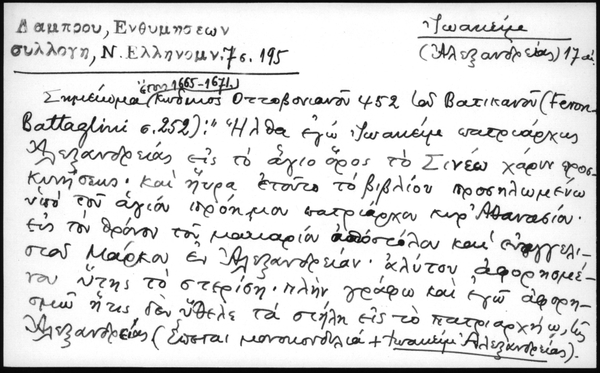 Λαμπρου, Ενθυμησεων
συλλογη, Ν. Ελληνομν. 7 σ. 195
Ἰωακεὶμ
(Ἀλεξανδρείας) 17 αἰ.
ἔτη 1665-1671.
Σημείωμα (Κώδικος Οττοβονιανοῦ 452 τοῦ Βατικανοῦ (Feron-
Battaglini σ. 252): "Ἦλθα ἐγὼ Ἰωακεὶμ πατριάρχης
Ἀλεξανδρείας εἰς τὸ ἅγιο ὄρος τὸ Σινέω χάριν προσ-
κυνήσεως· καὶ ηὗρα ἐτοῦτο τὸ βιβλίον προσηλωμένω
ὑπὸ τοῦ ἁγίου πρόημου πατριάρχου κυρ Ἀθανασίου·
εἰς τὸν θρόνον τοῦ μακαρίου ἀποστόλου καὶ εὐαγγελι-
στοῦ Μάρκου ἐν Ἀλεξανδρείαν· ἀλύτου ἀφορησμέ-
νου ὕτης τὸ στερίση· πλὴν γράφω καὶ ἐγὼ ἀφορη-
σμῶ ἥτις δὲν ὔθελε τὰ στήλη εἰς τὸ πατριαρχήω, τῆς
Ἀλεξανδρείας (Ἕπεται μονοκονδυλιά + Ἰωακεὶμ Ἀλεξανδρείας).